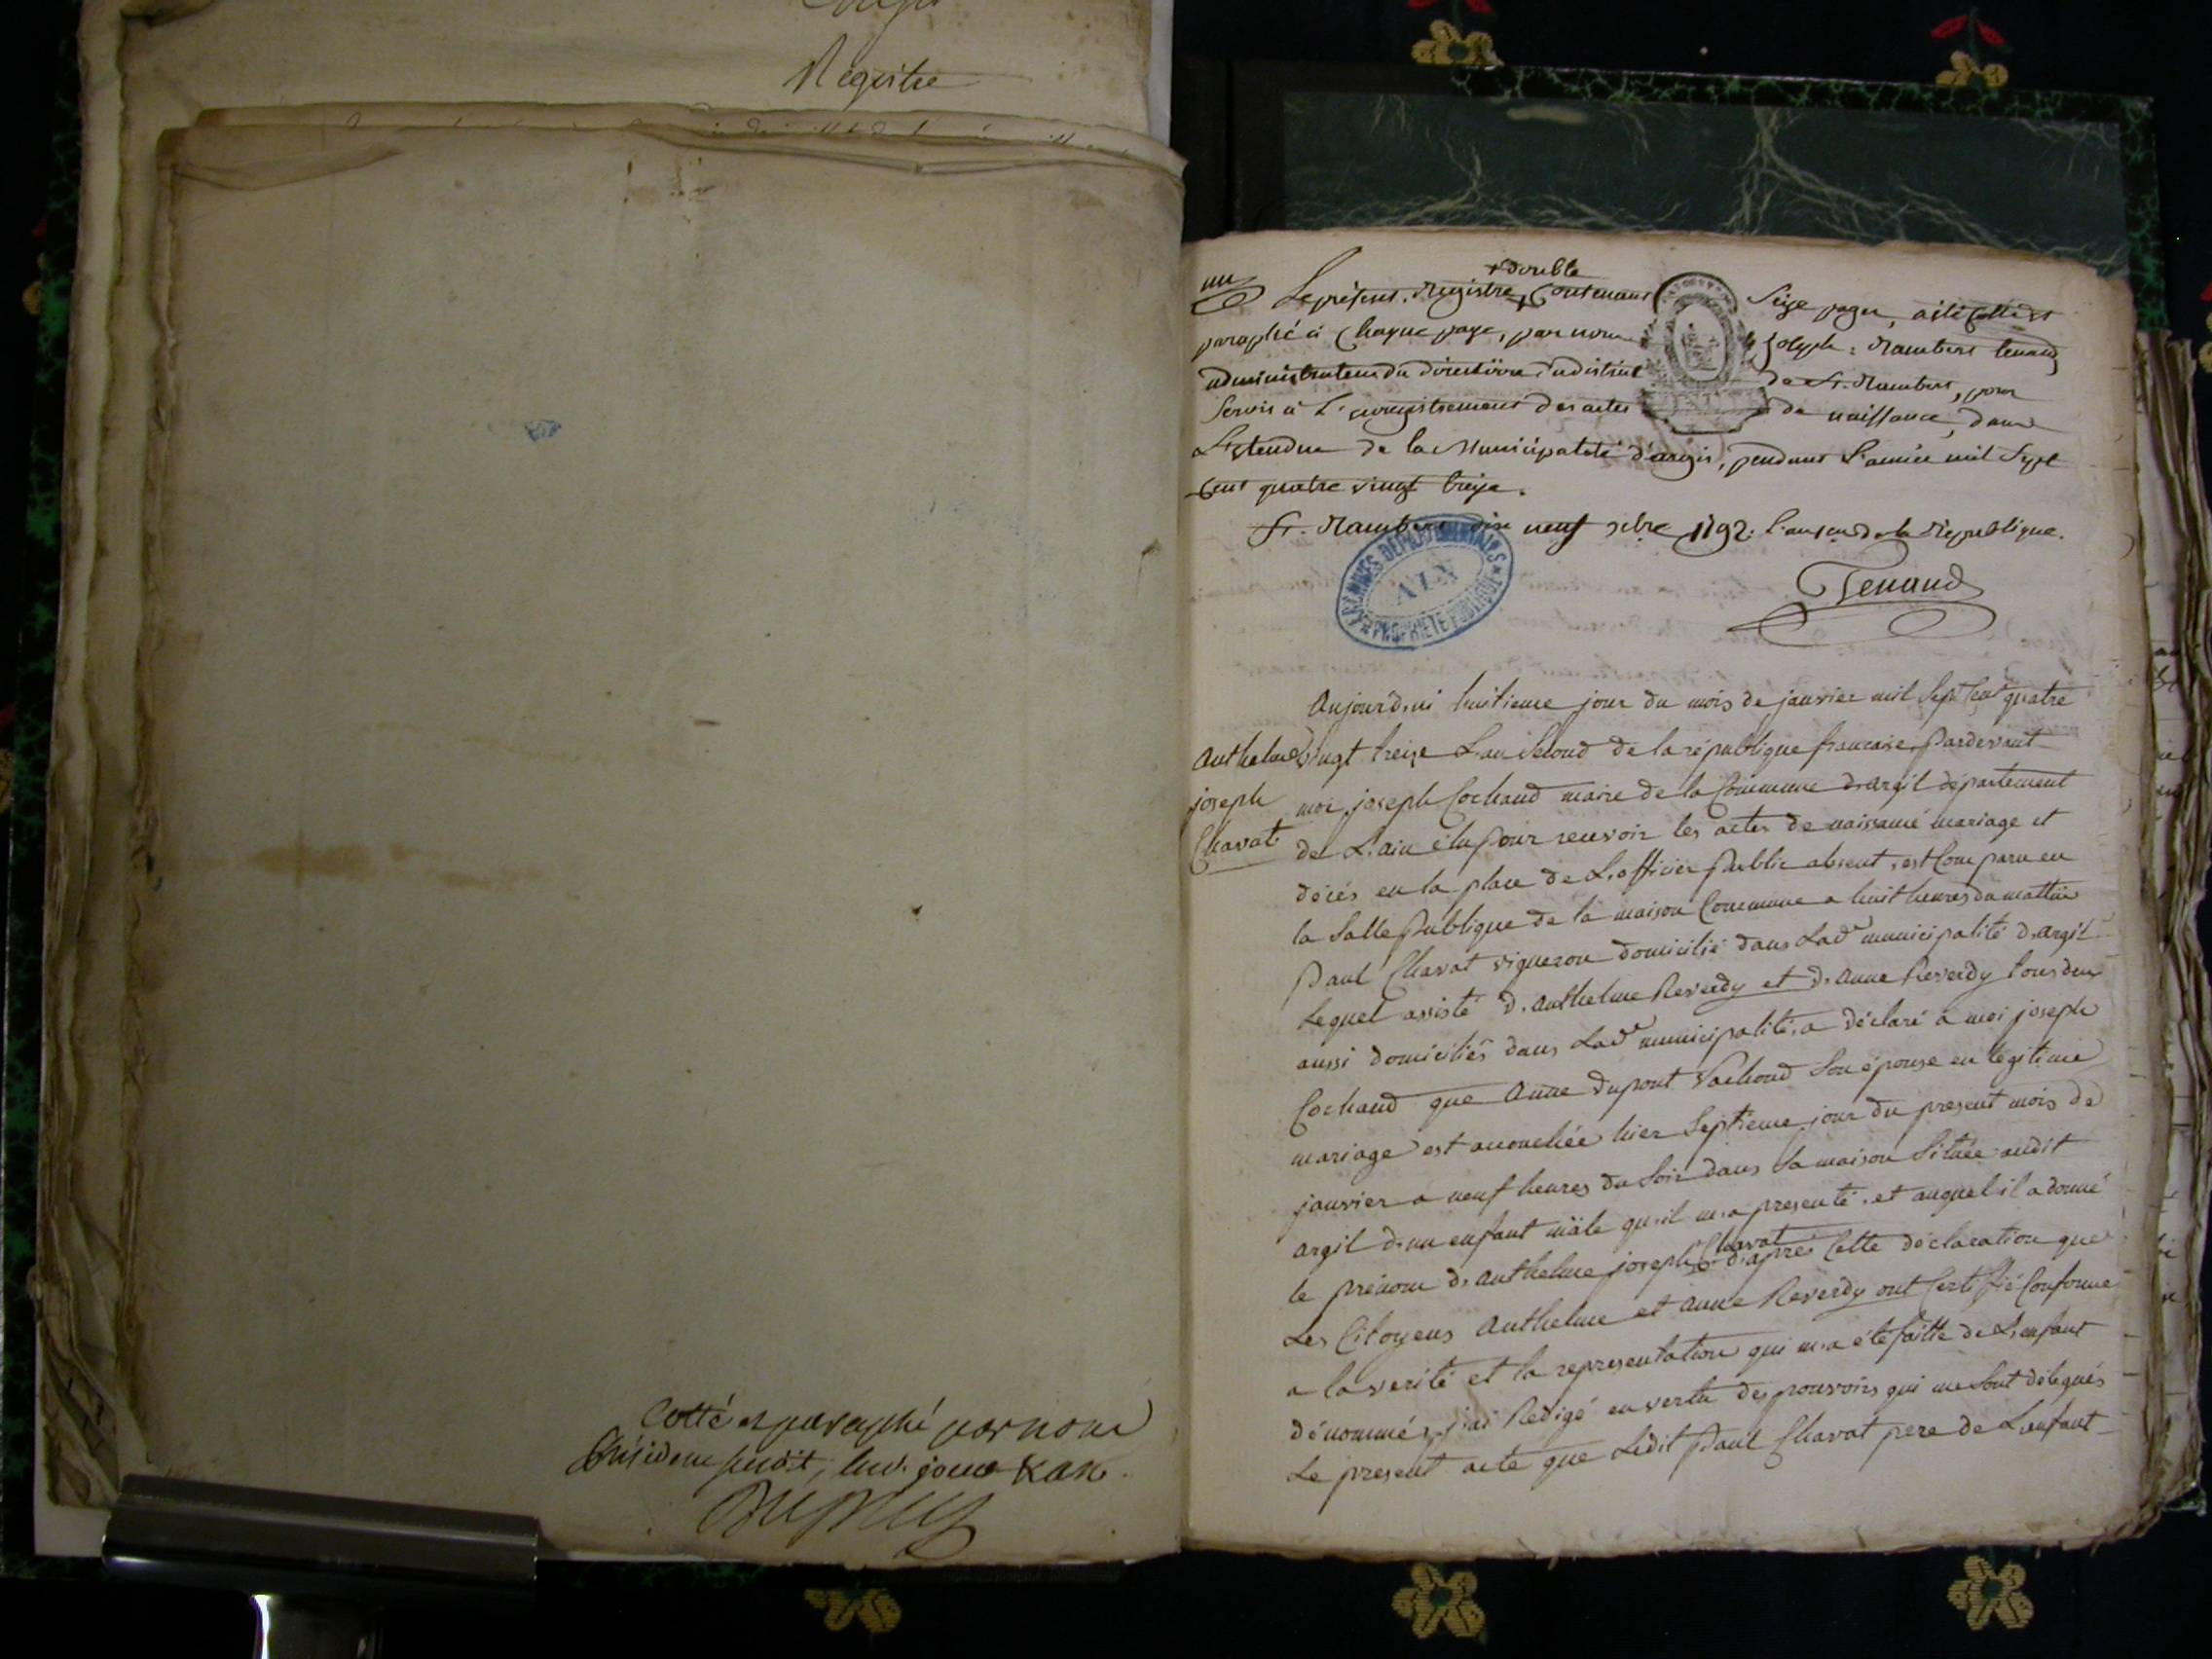 Registre
Cotté et paraphé par nous
Président
un
double
Le présent Registre, Contenant seize pages, a été Cotté et
paraphé à Chaque page, par nous joseph-Rambert tenand
administrateur du directoire du district de St. Rambert, pour
Servir à L'enregistrement des actes de naissance, dans
L'Etendue de la Municipalité d'argis, pendant L'année mil Sept
Cent quatre vingt treize.
St. Rambert neuf xbre 1792. L'an 1er de la République.
Tenand
ARCHIVES DÉPARTEMENTALES
AIN
PROPRIÉTÉ PUBLIQUE
Anthelme
joseph
Chavat
Aujourd'ui huitieme jour du mois de janvier mil Sept Cent quatre
vingt treize L'an Second de la république francaise, Pardevant
moi joseph Cochaud maire de la Commune d'argil département
de L'ain élu pour recevoir les actes de naissance mariage et
décés en la place de L'officier Public absent, est Comparu en
la Salle Publique de la maison Commune a huit heures du mattin
Paul Chavat vigneron domicilié dans Lade municipalité d'argil
Lequel assisté d'anthelme Reverdy et d'anne Reverdy tous deux
aussi domiciliés dans Lade municipalité, a déclaré a moi joseph
Cochaud que Anne Dupont Vachoud Son épouse en légitime
mariage est accouchée hier Septieme jour du present mois de
janvier a neuf heures du Soir dans Sa maison Située audit
argil d'un enfant mâle qu'il m'a presenté, et auquel il a donné
le prénom d'anthelme joseph Chavat d'apres Cette déclaration que
Les Citoyens Anthelme et Anne Reverdy ont Certifié Conforme
a la verité et la representation qui m'a été faitte de L'enfant
dénommé, j'ai Redigé en vertu des pouvoirs qui me Sont délégués
Le present acte que Ledit Paul Chavat pere de L'enfant